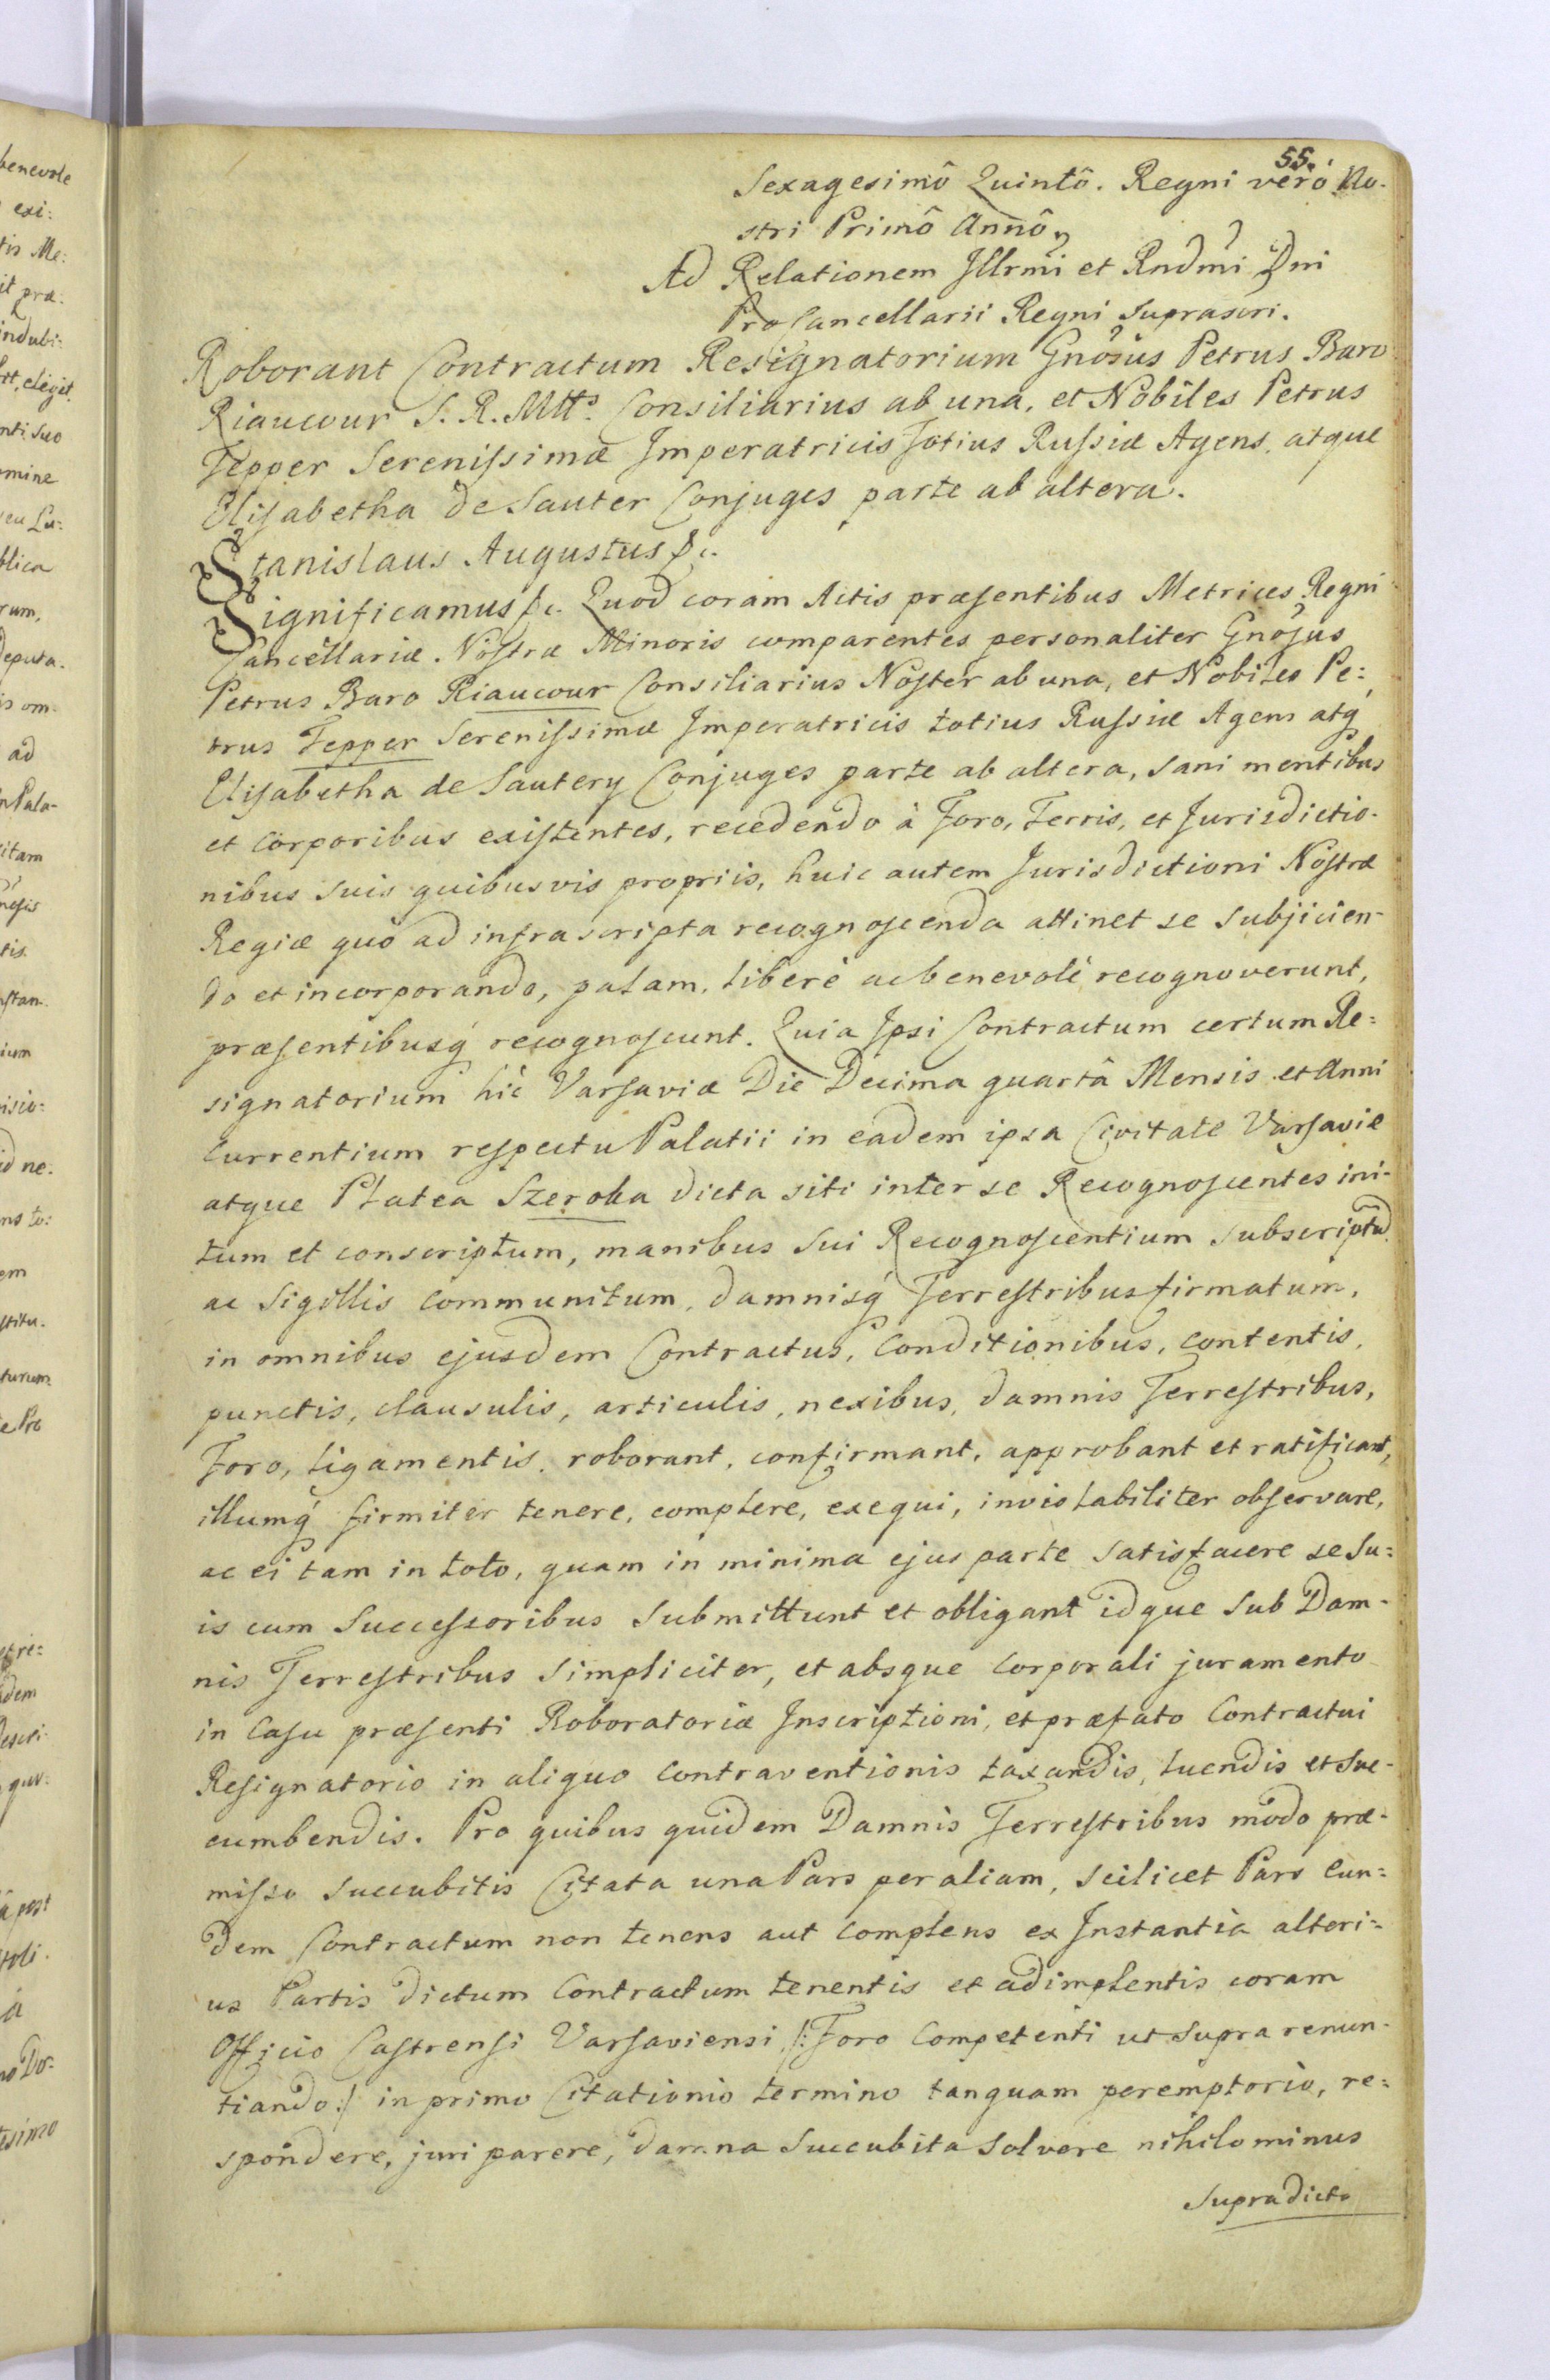 55.
Sexagesimô Quintô. Regni verò No-
stri Primô Annô
Ad Relationem Jllrmi et Rndmi Dni
ProCancellarii Regni suprascri.
Roborant Contractum Resignatorium Gnosus Petrus Baro
Riaucour S. R. Mtts Consiliarius ab una, et Nobiles Petrus
Tepper Serenissimæ Imperatricis Totius Russiæ Agens, atque
Elisabetha de Sauter Conjuges parte ab altera.
Stanislaus Augustus &c.
Significamus &c. Quod coram Actis præsentibus Metrices Regni
Cancellariæ Nostræ Minoris comparentes personaliter Gnosus
Petrus Baro Riaucour Consiliarius Noster ab una, et Nobiles Pe:
trus Tepper Serenissimæ Imperatricis totius Russiæ Agens atq
Elisabetha de Sautery Conjuges parte ab altera, sani mentibus
et corporibus existentes, recedendo à Foro, Terris, et Jurisdictio-
nibus suis quibusvis propriis, huic autem Jurisdictioni Nostræ
Regiæ quò ad infrascripta recognoscenda attinet se subjicien-
do et incorporando, palam, liberè ac benevolè recognoverunt,
præsentibusq recognoscunt. Quia Ipsi Contractum certum Re:
signatorium hîc Varsaviæ Die Decima quartâ Mensis et Anni
currentium respectu Palatii in eadem ipsa Civitate Varsaviæ
atque Platea Szeroka dicta siti inter se Recognoscentes ini-
tum et conscriptum, manibus sui Recognoscentium subscriptû
ac Sigillis communitum, damnisq Terrestribus firmatum,
in omnibus ejusdem Contractus, Conditionibus, contentis,
punctis, clausulis, articulis, nexibus, damnis Terrestribus,
Foro, ligamentis, roborant, confirmant, approbant et ratificant,
illumq firmiter tenere, complere, exequi, inviolabiliter observare,
ac ei tam in toto, quam in minima ejus parte satisfacere se su:
is cum Successoribus submittunt et obligant idque sub Dam-
nis Terrestribus simpliciter, et absque corporali juramento
in casu præsenti Roboratoriæ Inscriptioni, et præfato Contractui
Resignatorio in aliquo contraventionis taxandis, luendis et suc-
cumbendis. Pro quibus quidem Damnis Terrestribus modo præ-
misso succubitis Citata una Pars per aliam, scilicet Pars eun:
dem Contractum non tenens aut complens ex Instantia alteri:
us Partis dictum Contractum tenentis et adimplentis coram
Officio Castrensi Varsaviensi /: Foro Competenti ut supra renun-
tiando :/ in primo Citationis termino tanquam peremptorio, re:
spondere, juri parere, damna succubita solvere nihilominus
supradicto